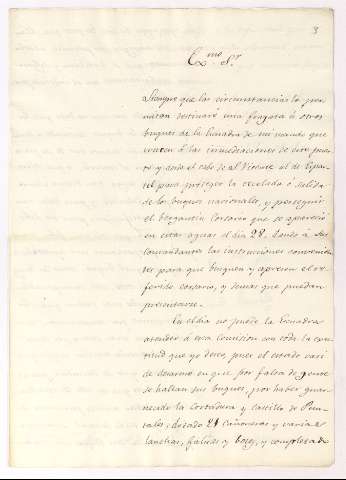 3
Exmo. Sr.
Siempre que las circunstancias lo per
mitan destinaré una fragata ó otros
buques de la Escuadra de mi mando que
crucen á las inmediaciones de este puer
to y desde el cabo de Sn Vicente al de Espar
tel para proteger la recalada ó salida
de los buques nacionales, y perseguir
el bergantin corsario que se apareció
en estas aguas el dia 28. dando á sus
comandantes las instrucciones convenien
tes para que busquen y apresen el re
ferido corsario, y demas que puedan
presentarse.
En el dia no puede la Escuadra
atender á esta comision con toda la exac
titud que yo deseo pues el estado casi
de desarmo en que por falta de gente
se hallan sus buques, por haber guar
necido la Cortadura y Castillo de Pun
tales, dotado 24 cañoneras y varias
lanchas, faluas y botes, y completa de